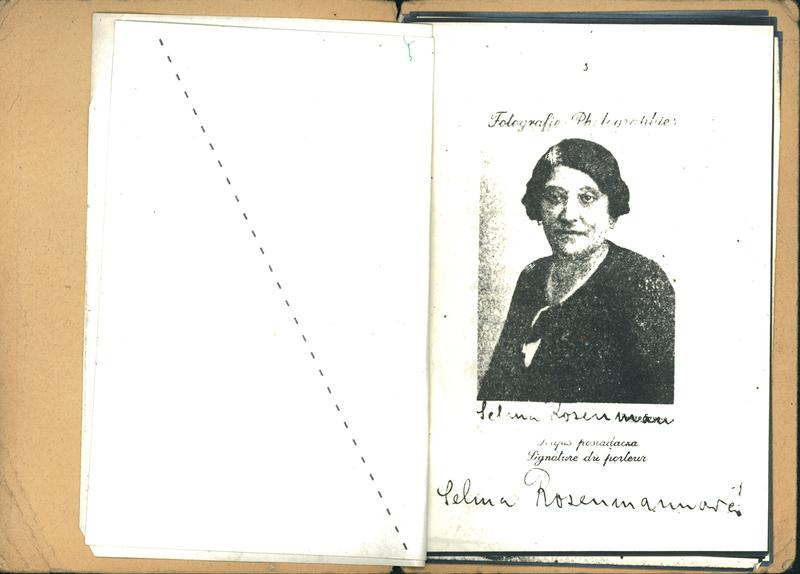 3
Fotografje Photographies
Selma Rosenmann
Podpis posiadacza
Signature du porteur
Selma Rosenmannové